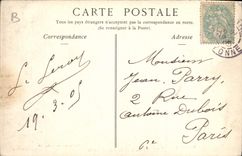 B
CARTE POSTALE
Tous les pays étrangers n'acceptent pas la correspondance au recto.
(Se renseigner à la Poste)
Correspondance
Adresse
Monsieur
Jean Parry
2 Rue
Antoine Dubois
Paris
6e
19.3.05